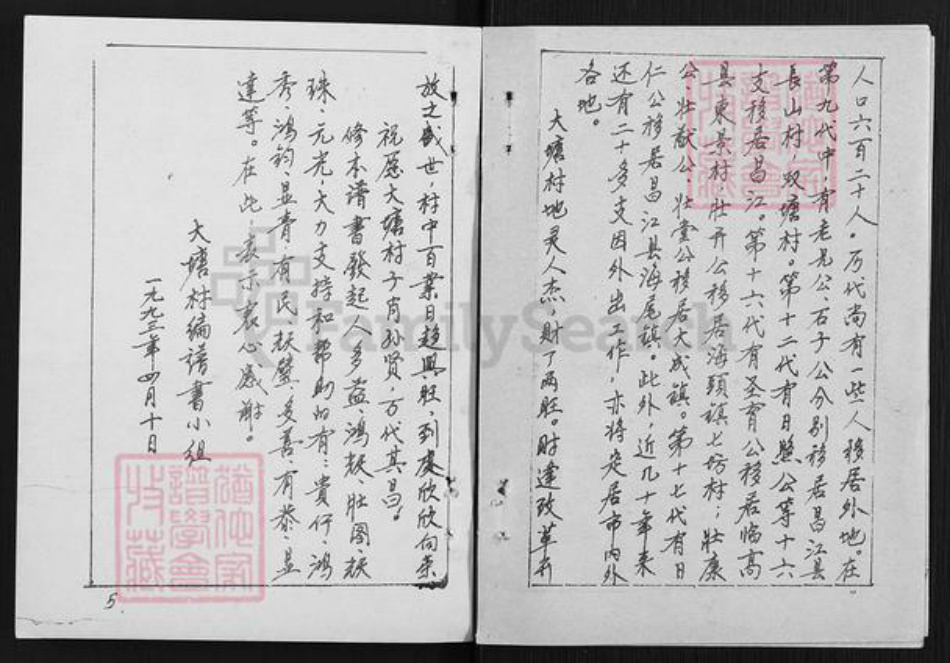 人口六百二十人。历代尚有一些人移居外地。在
第九代中，有老兄公、石子公分别移居昌江县
長山村，双塘村。第十二代有日照公等十六
支移居昌江。第十六代有圣育公移居临高
县東景村；壮开公移居海頭鎮七坊村；壮廉
公、壮献公、壮堂公移居大成鎮。第十七代有日
仁公移居昌江县海尾鎮。此外，近几十年来
还有二十多支因外出工作，亦將定居市内外
各地。
大塘村地灵人杰，財丁两旺。时逢改革开
放之盛世，村中百業日趋興旺，到處欣欣向荣
祝愿大塘村子肖孙贤，万代其昌。
修本谱書發起人多益、鴻
珠、元光，大力支持和帮助的有：貴仔、鴻
秀、鴻鈞、显青、有民、多喜、有恭、显
達等。在此，表示衷心感謝。
大塘村編譜書小組
一九九三年四月十日
5
FamilySearch